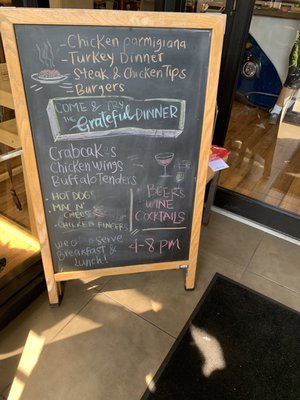 -Chicken parmigiana
-Turkey Dinner
-Steak & Chicken Tips
-Burgers
COME & TRY
THE Grateful DINNER
Crabcakes
Chicken Wings
Buffalo Tenders
-HOT DOGS
-MAC N' CHEESE
-CHICKEN FINGERS
BEERS
WINE
COCKTAILS
4-8 PM
we also serve
Breakfast &
lunch!